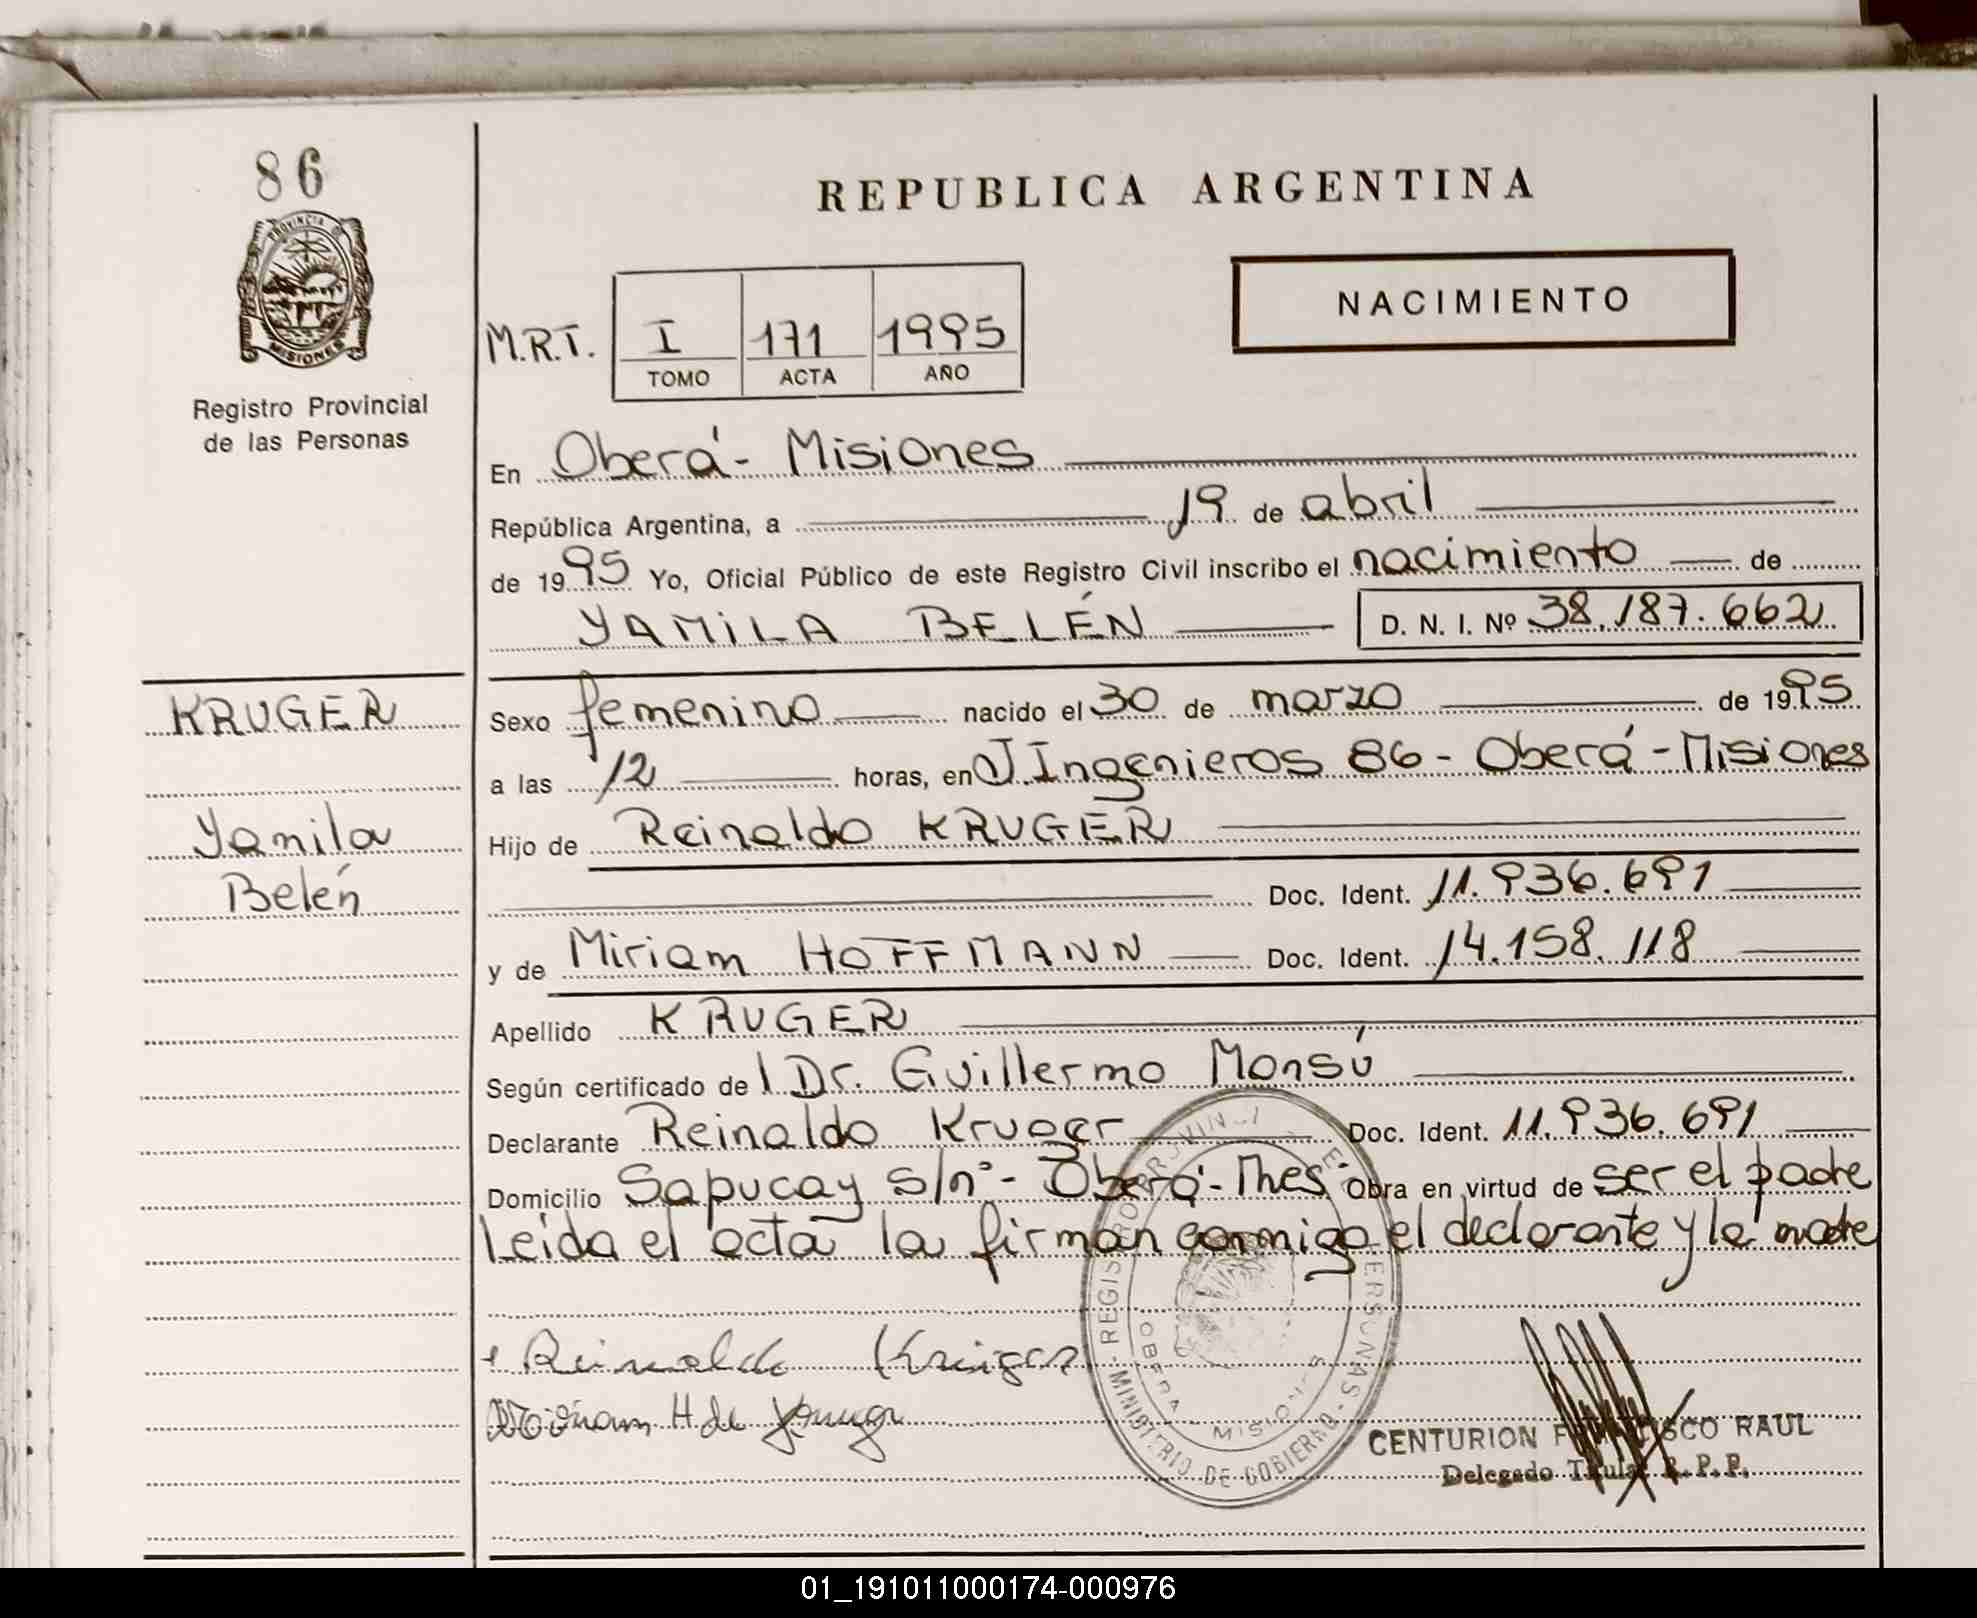 86
PROVINCIA DE
MISIONES
Registro Provincial
de las Personas
REPUBLICA ARGENTINA
NACIMIENTO
M.R.T. I 171 1995
TOMO ACTA AÑO
En Oberá - Misiones
República Argentina, a 19 de abril
de 1995 Yo, Oficial Público de este Registro Civil inscribo el nacimiento de
YAMILA BELÉN D. N. I. Nº 38.187.662
KRUGER
Yamila
Belén
Sexo femenino nacido el 30 de marzo de 1995
a las 12 horas, en J Ingenieros 86 - Oberá - Misiones
Hijo de Reinaldo KRUGER
Doc. Ident. 11.936.691
y de Miriam HOFFMANN Doc. Ident. 14.158.118
Apellido KRUGER
Según certificado de l Dr. Guillermo Monsú
Declarante Reinaldo Kruger Doc. Ident. 11.936.691
Domicilio Sapucay s/nº - Oberá - Mnes. Obra en virtud de ser el padre
Leída el acta la firman conmigo el declarante y la madre
Reinaldo Krüger
Miriam H. de
REGISTRO PROVINCIAL DE LAS PERSONAS - MINISTERIO DE GOBIERNO -
OBERA - MISIONES
CENTURION FRANCISCO RAUL
Delegado Titular R. P. P.
01_191011000174-000976